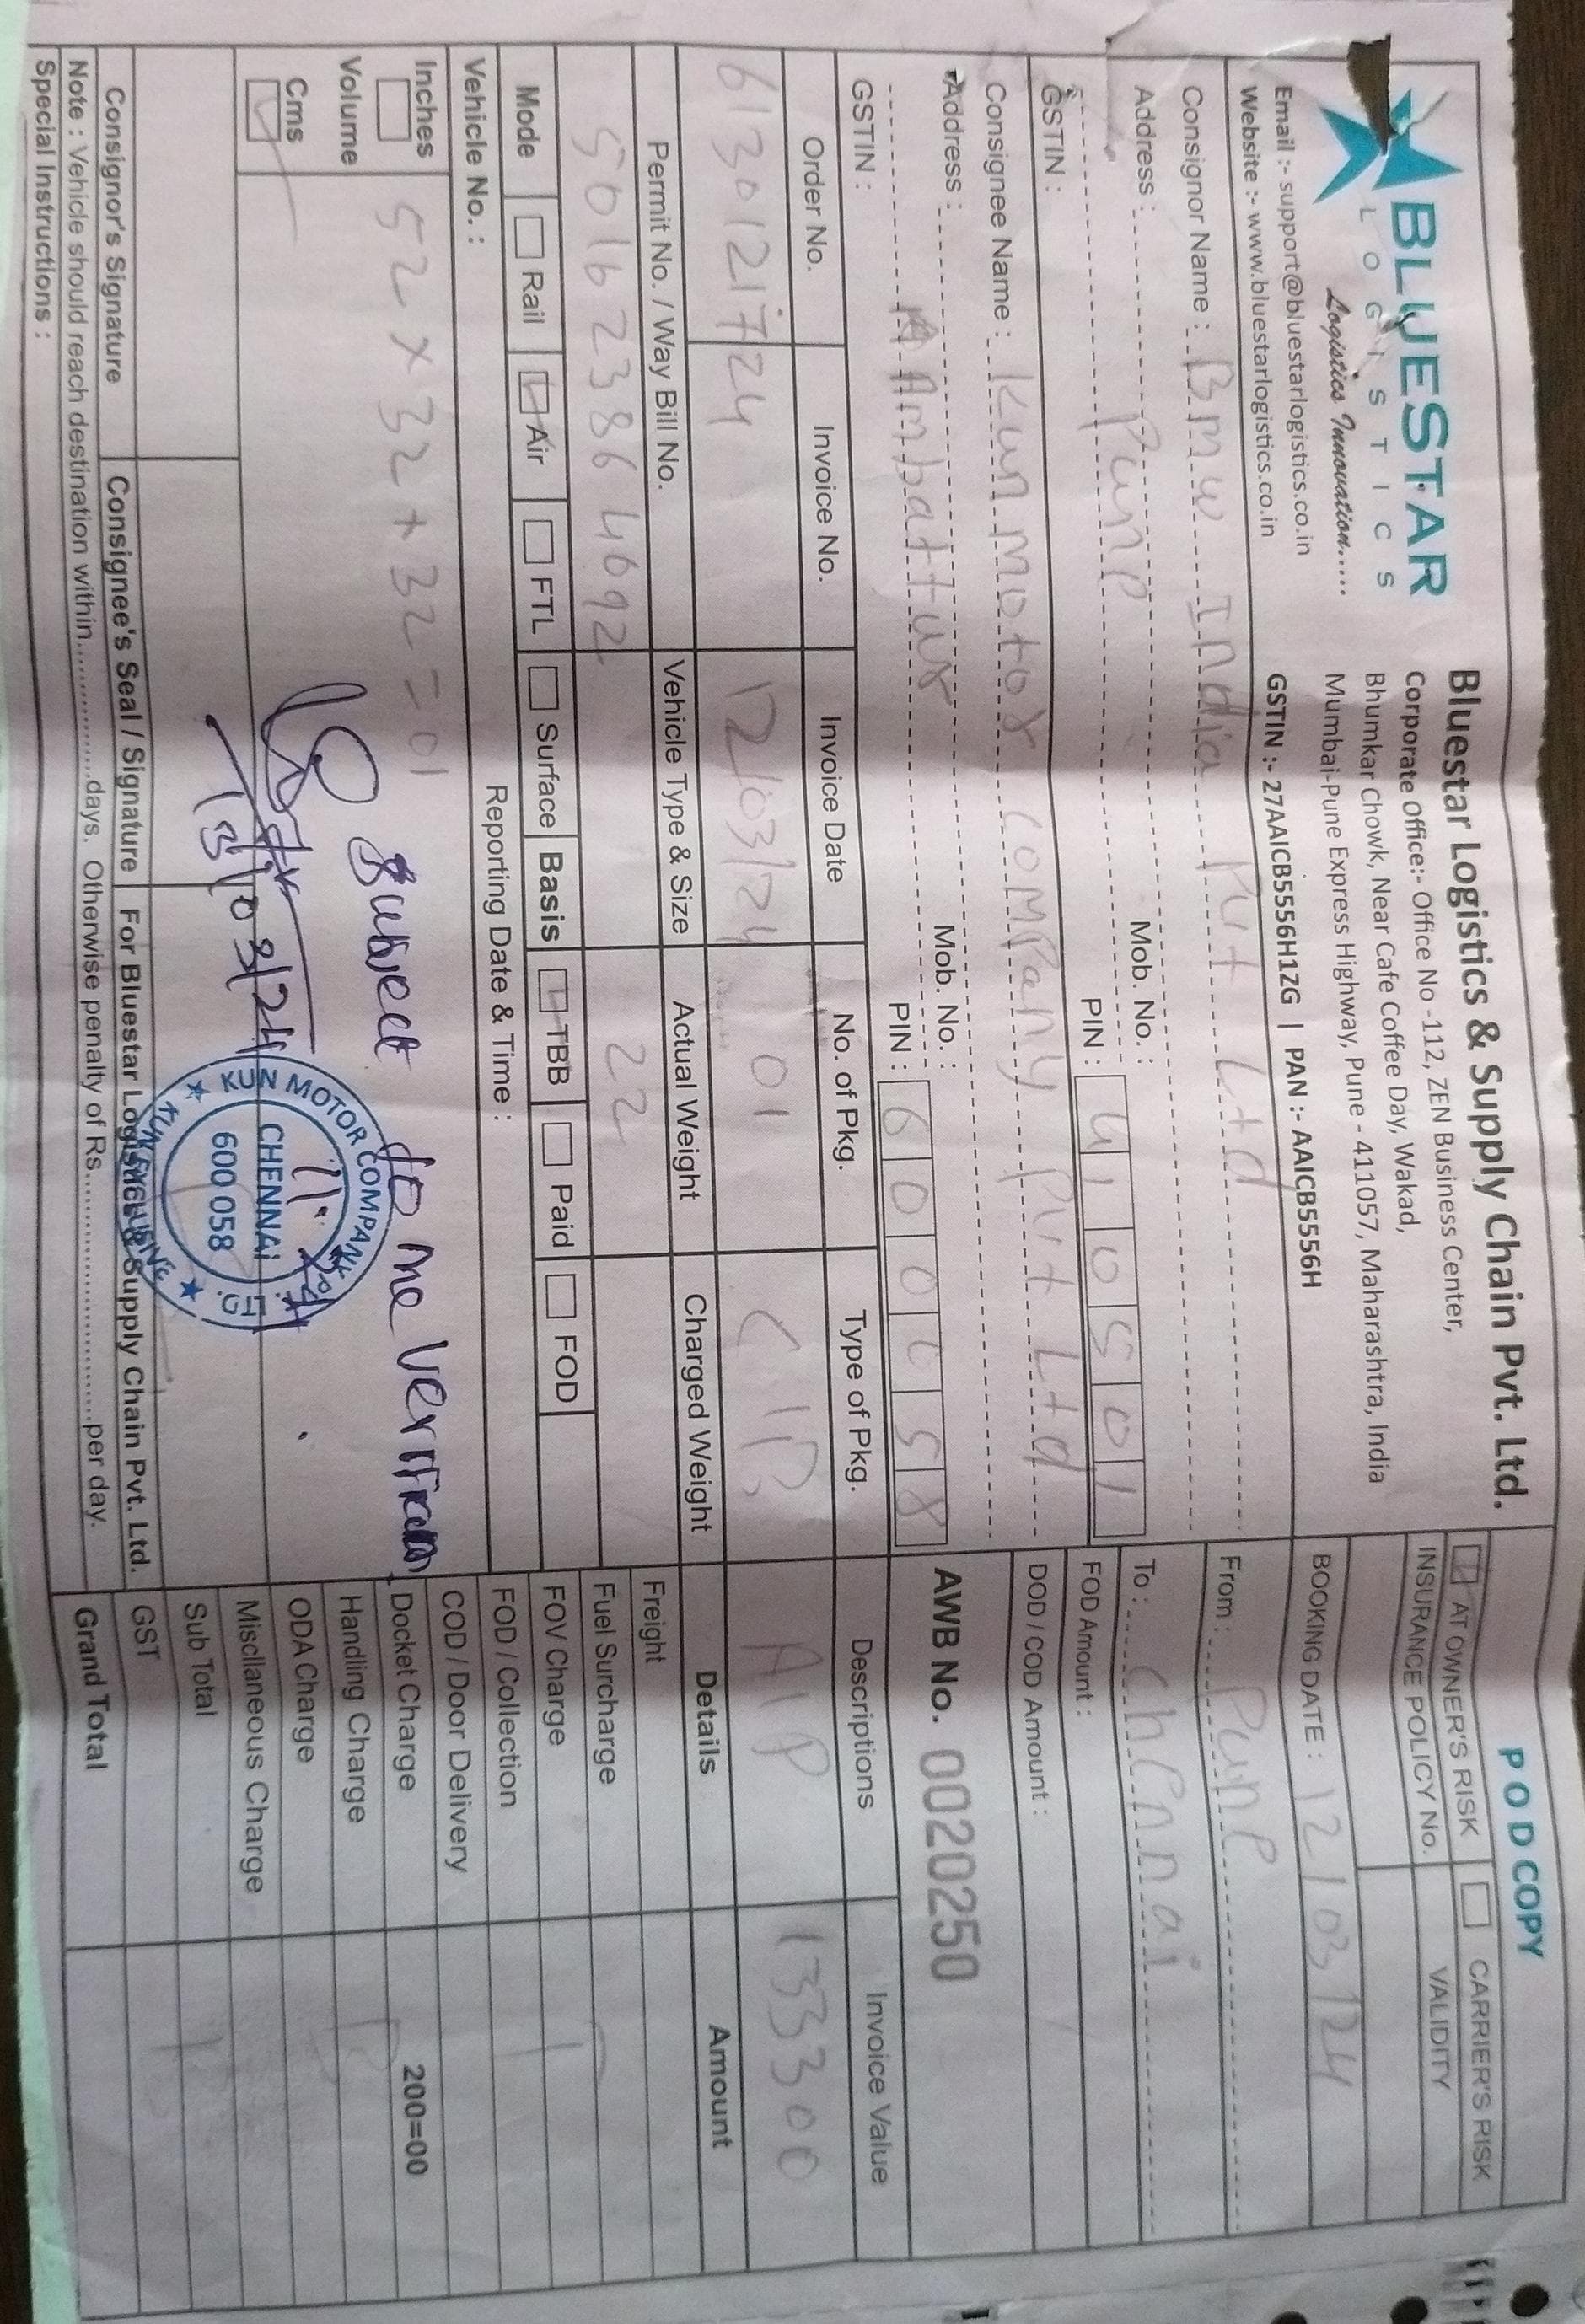 BLUESTAR
LOGISTICS
Logistics Innovation.....
Email :- support@bluestarlogistics.co.in
Website :- www.bluestarlogistics.co.in
Bluestar Logistics & Supply Chain Pvt. Ltd.
Corporate Office:- Office No -112, ZEN Business Center,
Bhumkar Chowk, Near Cafe Coffee Day, Wakad,
Mumbai-Pune Express Highway, Pune - 411057, Maharashtra, India
GSTIN :- 27AAICB5556H1ZG | PAN :- AAICB5556H
POD COPY
AT OWNER'S RISK CARRIER'S RISK
INSURANCE POLICY No. VALIDITY
BOOKING DATE : 12/03/24
From : Pune
To : Chennai
FOD Amount :
DOD / COD Amount :
AWB No. 0020250
Consignor Name : Bmw India Pvt Ltd
Address : Pune
Mob. No. :
PIN : 410501
GSTIN :
Consignee Name : Kun motor company pvt Ltd
Address : Ambattur
Mob. No. :
PIN : 600058
GSTIN :
Order No. Invoice No. Invoice Date No. of Pkg. Type of Pkg. Descriptions Invoice Value
6130121724 12/03/24 01 AIP 133300
Permit No. / Way Bill No. Vehicle Type & Size Actual Weight Charged Weight
501623864692 22
Mode Rail Air FTL Surface Basis TBB Paid FOD
Vehicle No. : Reporting Date & Time :
Inches
Volume
Cms
52 x 32 x 32 = 01
Subject to the Verification
13/03/24
KUN MOTOR COMPANY PVT. LTD.
CHENNAi
600 058
★ KUN EXCLUSIVE ★
Details Amount
Freight
Fuel Surcharge
FOV Charge
FOD / Collection
COD / Door Delivery
Docket Charge 200=00
Handling Charge
ODA Charge
Miscllaneous Charge
Sub Total
GST
Grand Total
Consignor's Signature Consignee's Seal / Signature For Bluestar Logistics & Supply Chain Pvt. Ltd.
Note : Vehicle should reach destination within.................days. Otherwise penalty of Rs................................per day.
Special Instructions :